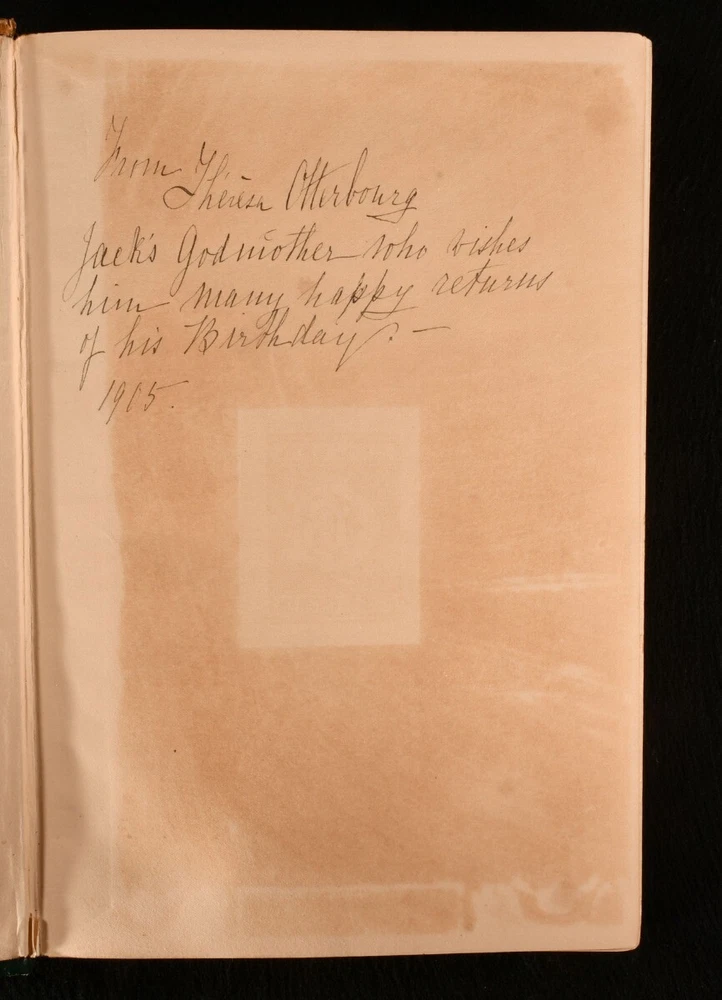 From
Thérèse Otterbourg
Jack's Godmother who wishes
him many happy returns
of his Birthday. —
1905.